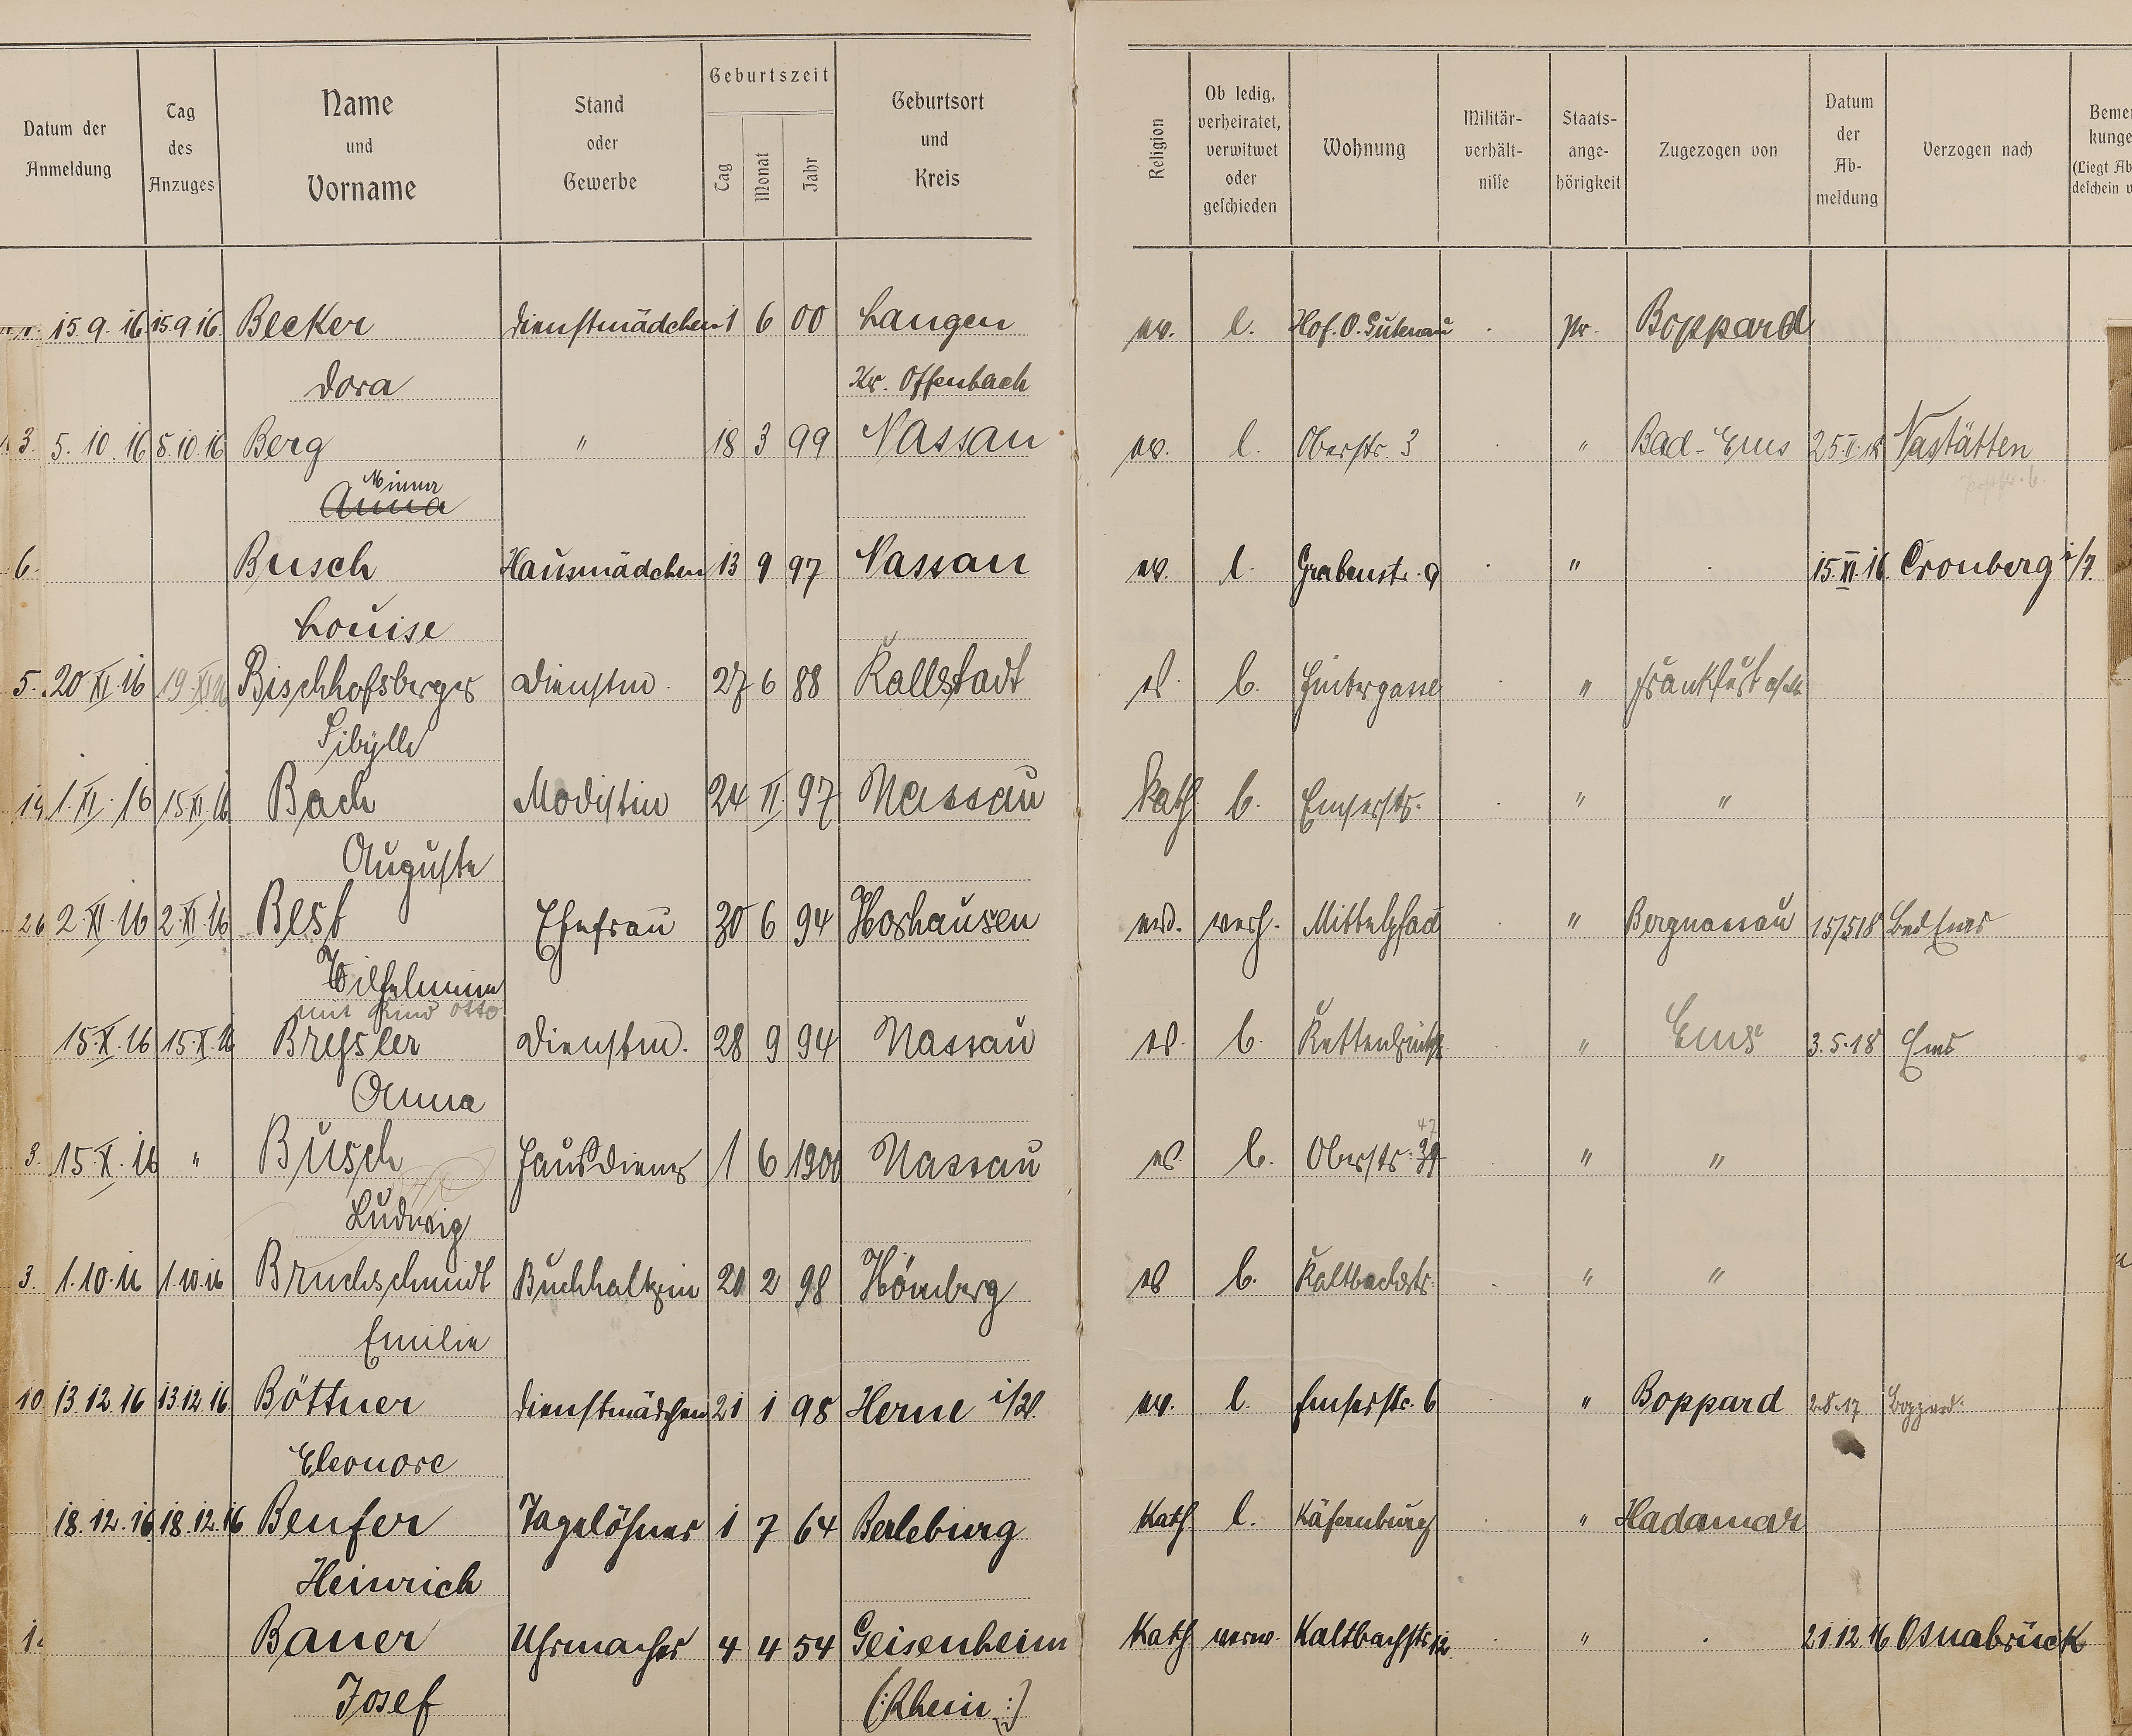 Datum der Anmeldung | Tag des Anzuges | Name und Vorname | Stand oder Gewerbe | Geburtszeit Tag Monat Jahr | Geburtsort und Kreis | Religion | Ob ledig, verheiratet, verwitwet oder geschieden | Wohnung | Militär-verhält-nisse | Staats-ange-hörigkeit | Zugezogen von | Datum der Ab-meldung | Verzogen nach | Beme kunge (Liegt Ab deschein v
15.9.16 15.9.16. Becker Dienstmädchen 1 6 00 Langen ev. l. Hof. O. Gutenau pr. Boppard
Dora Kr. Offenbach
3. 5.10.16 5.10.16 Berg " 18 3 99 Nassau ev. l. Oberstr. 3 " Bad-Ems 25.II.18 Nastätten
Minna
Anna
6. Busch Hausmädchen 13 9 97 Nassau ev. l. Grabenstr. 9 " 15.XI.16. Cronberg i/T.
Louise
5. 20.XI.16 19.XI.16 Bischhofsberger Dienstm. 27 6 88 Kallstadt ev. l. Hintergasse " Frankfurt a/M
Sibylle
1.XI.16 15.XI.16 Bach Modistin 24 II. 97 Nassau Kath. l. Emserstr. " "
Auguste
26 2.XI.16 2.XI.16 Best Ehefrau 30 6 94 Hoshausen verh. Mittelpfad " Bergnassau 15/5 18 Bad Ems
Wilhelmine
mit Kind Otto
15.X.16 15.X.16 Bressler Dienstm. 28 9 94 Nassau ev. l. " Ems 3.5.18 Ems
Anna
3. 15.X.16 " Busch Hausdiener 1 6 1900 Nassau ev. l. Oberstr. 39 47 " "
Ludwig
3. 1.10.16 1.10.16 Bruchschmidt Buchhalterin 20 2 98 Hömberg ev l. Kaltbachstr. " "
Emilie
10 13.12.16 13.12.16. Böttner Dienstmädchen 21 1 98 Herne i/W. ev. l. Emserstr. 6 " Boppard 2.8.17 Boppard
Eleonore
18.12.16 18.12.16 Benfer Tagelöhner 1 7 64 Berleburg Kath l. Käfernburg " Hadamar
Heinrich
Bauer Uhrmacher 4 4 54 Geisenheim Kath verw. Kaltbachstr. 12. " 21.12.16 Osnabrück
Josef (:Rhein:)